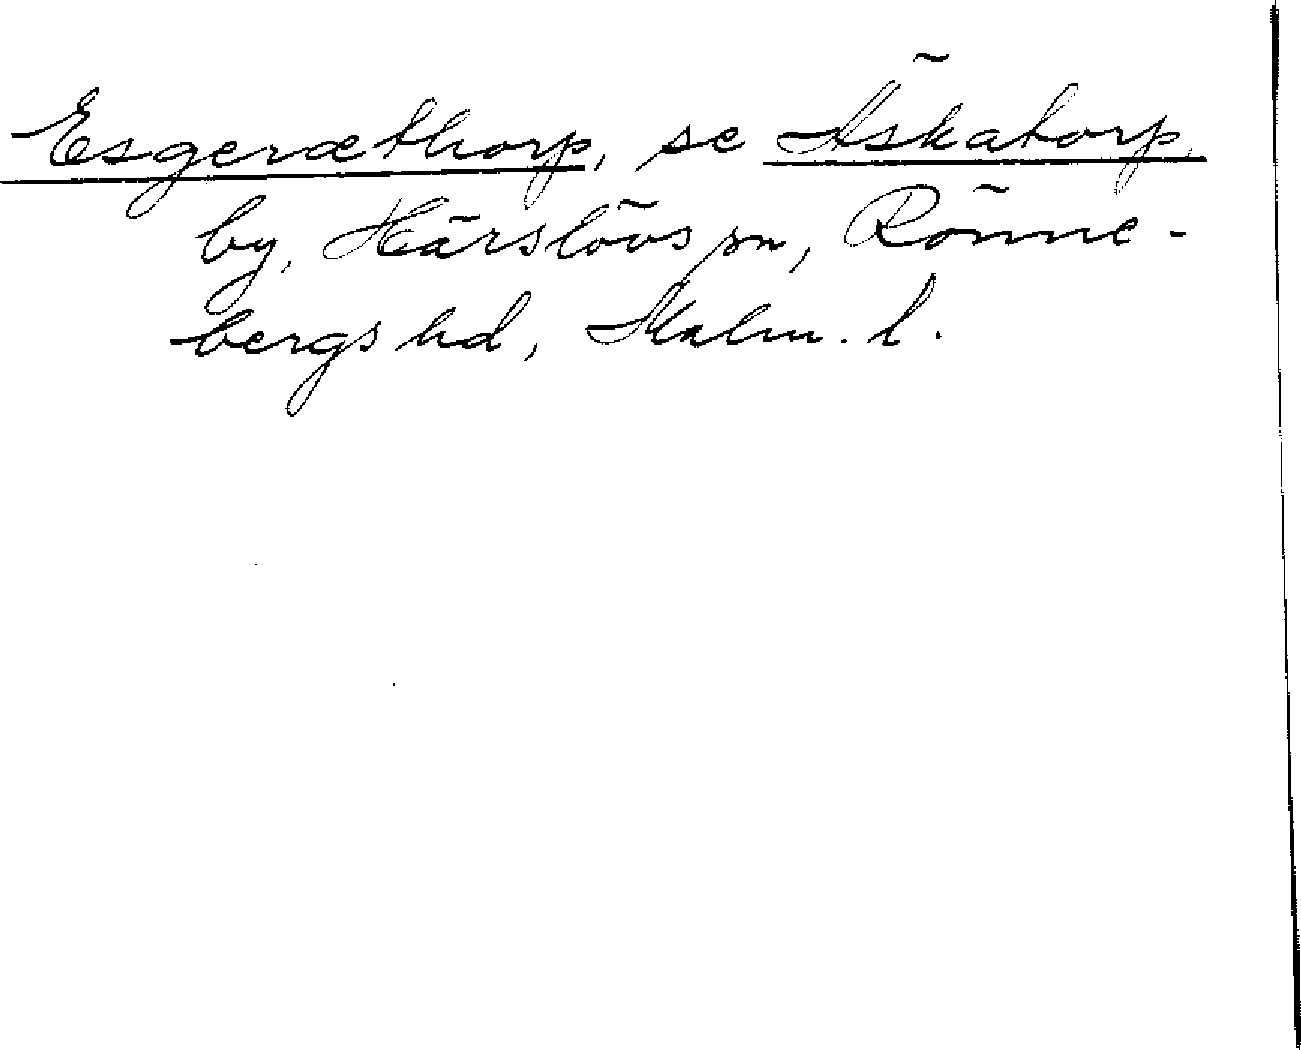 Esgeræthorp, se Äskatorp,
by, Härslövs sn, Rönne-
bergs hd, Malm. l.